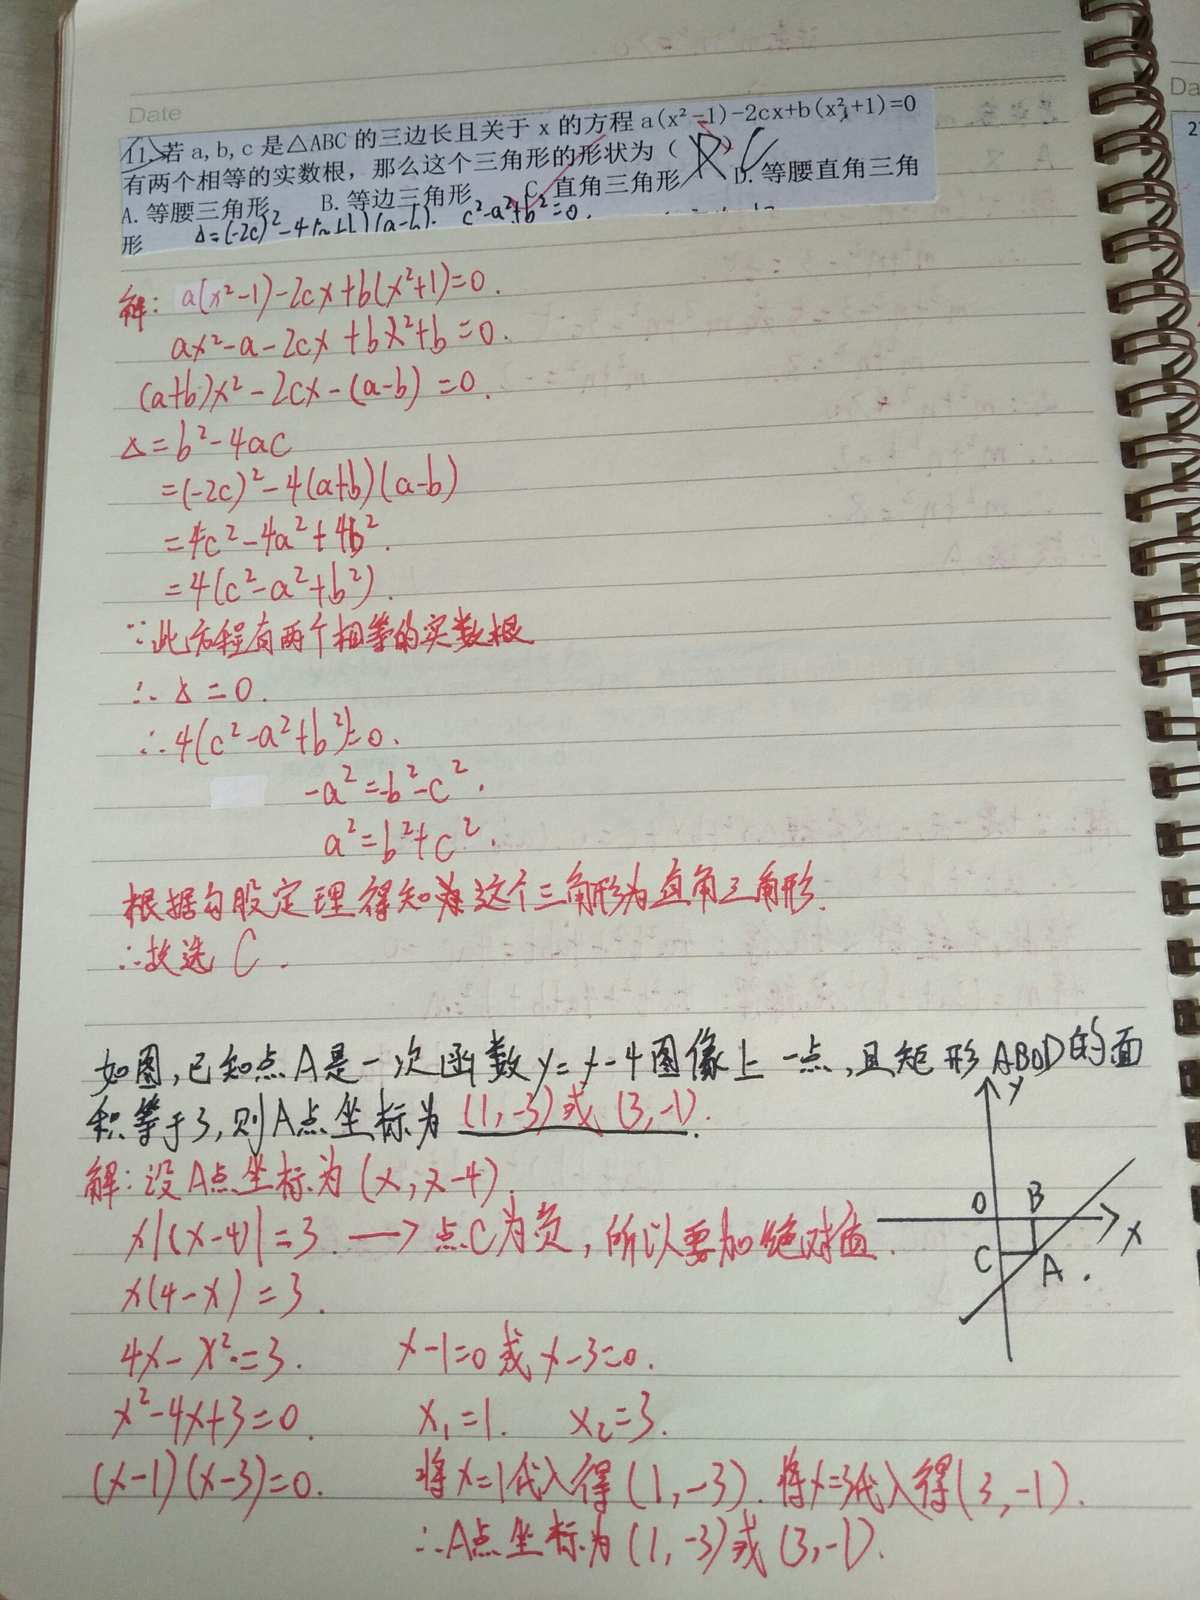 Date
11、若a,b,c是△ABC的三边长且关于x的方程a(x²-1)-2cx+b(x²+1)=0
有两个相等的实数根，那么这个三角形的形状为（
A.等腰三角形 B.等边三角形 C.直角三角形 D.等腰直角三角
形 Δ=(-2c)²-4(a+b)(a-b). c²-a²+b²=0.
解: a(x²-1)-2cx+b(x²+1)=0.
ax²-a-2cx+bx²+b=0.
(a+b)x²-2cx-(a-b)=0.
Δ=b²-4ac
=(-2c)²-4(a+b)(a-b)
=4c²-4a²+4b².
=4(c²-a²+b²).
∵此方程有两个相等的实数根
∴Δ=0.
∴4(c²-a²+b²)=0.
-a²=-b²-c².
a²=b²+c².
根据勾股定理得知这个三角形为直角三角形.
∴故选C.
如图,已知点A是一次函数y=x-4图像上一点,且矩形ABOD的面
积等于3,则A点坐标为(1,-3)或(3,-1).
解:设A点坐标为(x,x-4).
x|(x-4)|=3. → 点C为负,所以要加绝对值.
x(4-x)=3.
4x-x²=3. x-1=0或x-3=0.
x²-4x+3=0. x₁=1. x₂=3.
(x-1)(x-3)=0. 将x=1代入得(1,-3).将x=3代入得(3,-1).
∴A点坐标为(1,-3)或(3,-1).
y
O B
x
C A